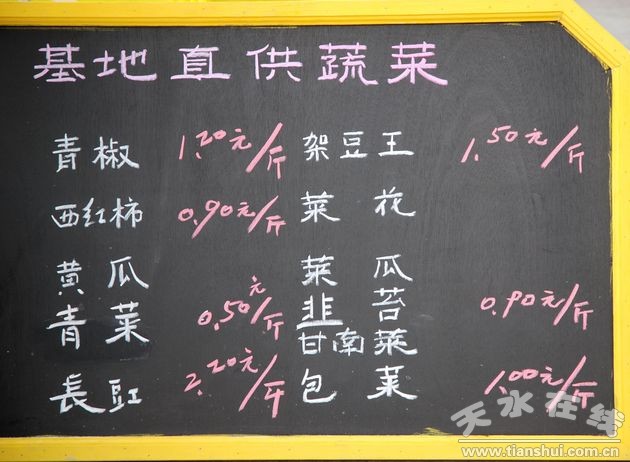 基地直供蔬菜
青椒 1.20元/斤 架豆王 1.50元/斤
西红柿 0.90元/斤 菜花
黄瓜 菜瓜
青菜 0.50元/斤 韭苔 0.90元/斤
甘南菜
長豇 2.20元/斤 包菜 1.00元/斤
天水在线
www.tianshui.com.cn